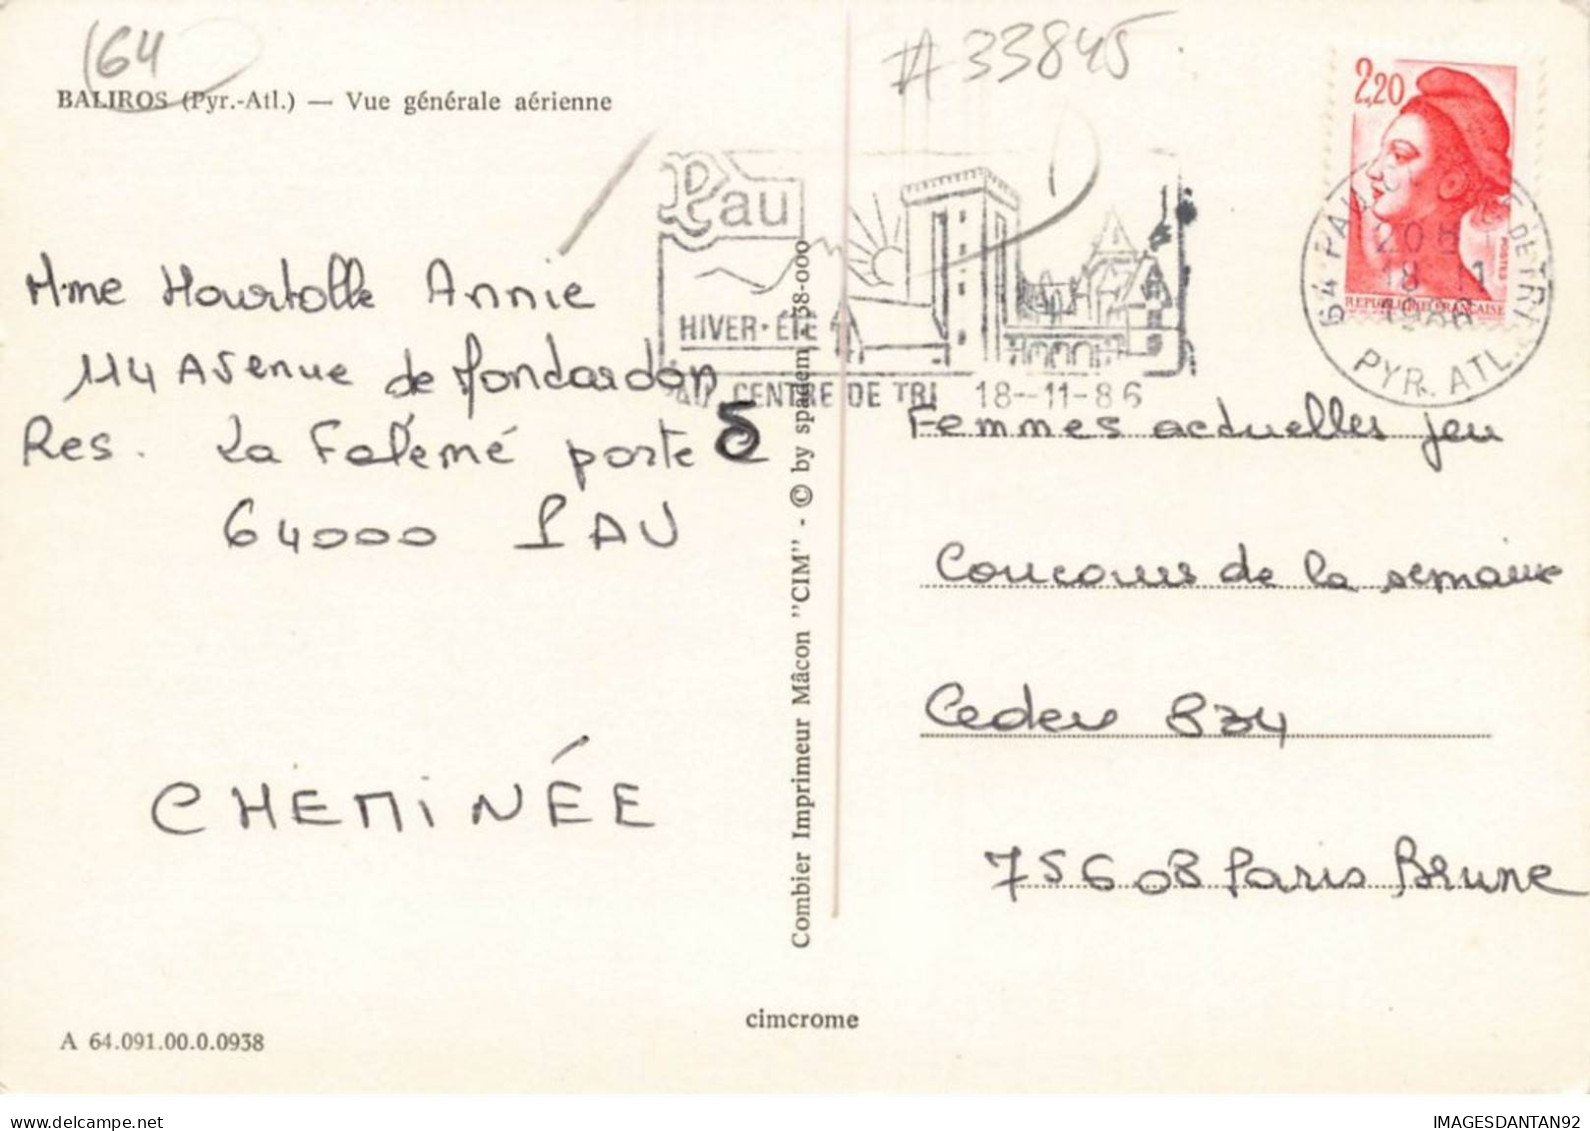 (64
# 33845
BALIROS (Pyr.-Atl.) — Vue générale aérienne
2,20
POSTES
REPUBLIQUE FRANCAISE
64 PAU DE TRI
20 H
18 - 11
1986
PYR. ATL.
Pau
HIVER • ÉTÉ
PAU CENTRE DE TRI 18-11-86
Mme Hourtolle Annie
114 Avenue de
Res. La Falémé porte 5
64000 PAU
CHEMINÉE
Combier Imprimeur Mâcon "CIM" - © by spadem - 38-000
Femmes actuelles jeu
Concours de la semaine
Cedex 834
75608 Paris Brune
cimcrome
A 64.091.00.0.0938
www.delcampe.net
IMAGESDANTAN92